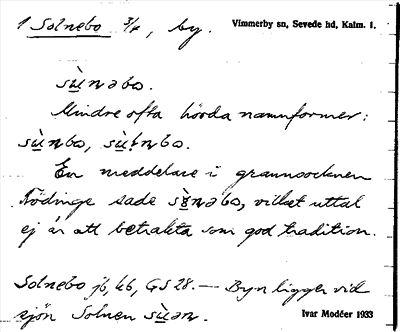 1 Solnebo 3/4, by. Vimmerby sn, Sevede hd, Kalm. l.
sùnəbo.
Mindre ofta hörda namnformer:
sùnbo, sùlnbo.
En meddelare i grannsocknen
Södinge sade sùnəbo, vilket uttal
ej är att betrakta som god tradition.
Solnebo jb, kb, GS 28. — Byn ligger vid
sjön Solnen sùən. Ivar Modéer 1933